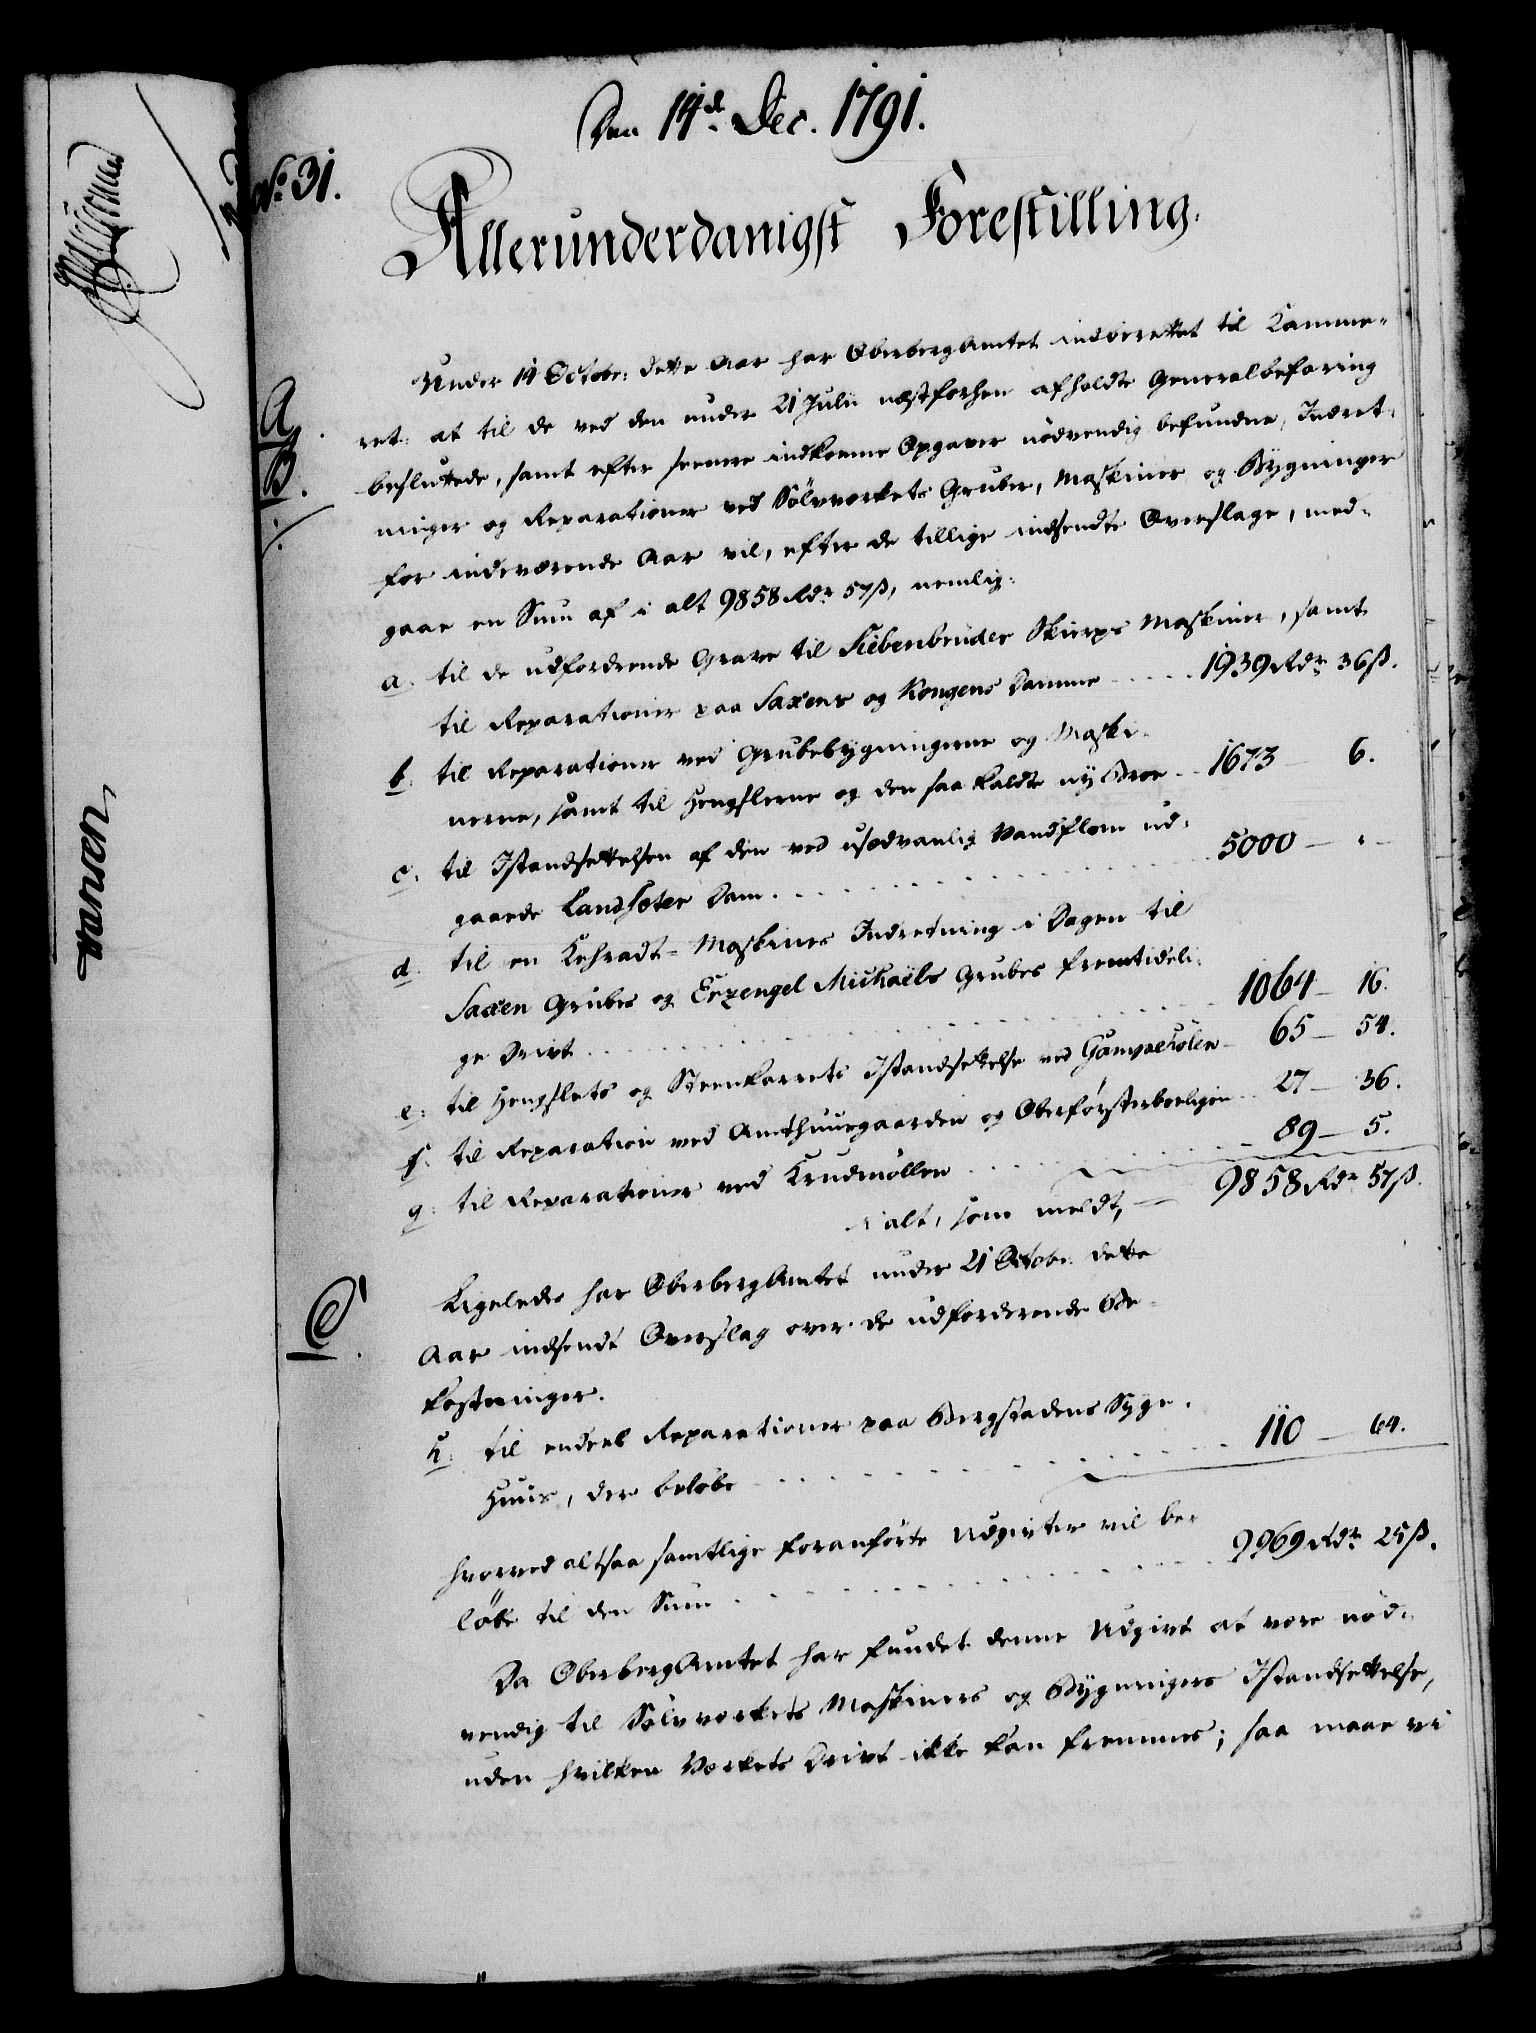 Den 14d. Dec. 1791.
No. 31.
Allerunderdanigst Forestilling.
A
Under 14 Octobr: dette Aar har OberbergAmtet indberettet til Kamme-
ret: at til de ved den under 21 Julii næstforhen afholdte Generalbefaring
B.
besluttede, samt efter seenere indkomne Opgaver nödvendig befundne, Indret-
ninger og Reparationer ved Sölvværkets Gruber, Maskiner og Bygninger
for indeværende Aar vil, efter de tillige indsendte Overslage, med-
gaae en Sum af i alt 9858 Rdr 57 ß, nemlig:
a. til de udfordrende Grave til Siebenbrüder Skierps Maskiner, samt
til Reparationer paa Saxens og Kongens Damme ..... 1939 Rdr 36 ß.
b. til Reparationer ved Grubebygningerne og Maski-
nerne, samt til Hengslerne og den saa kaldte nÿ Broe .. 1673 6.
c. til Istandsættelsen af den ved usædvanlig Vandflom ud-
gaaede Landfæter Dam ............ 5000 — " —
d. til en Kehradt-Maskines Indretning i Dagen til
Saxen Grubes og Erzengel Michaëls Grubes fremtideli-
ge Drivt ............ 1064 — 16.
e. til Hengslets og Steenkarrets Istandsættelse ved Gampæiolen — 65 — 54.
f. til Reparation ved Amthuusgaarden og Oberförsterboeligen .. 27 — 36.
g. til Reparationer ved Krudmöllen ...... 89 — 5.
i alt, som meldt, — 9858 Rdr 57 ß.
C
Ligeledes har OberbergAmtet under 21 Octobr. dette
Aar indsendt Overslag over de udfordrende Be-
kostninger.
h. til endeel Reparationer paa Bergstadens Syge-
Huus, der belöbe ............ 110 — 64.
hvorved altsaa samtlige foranförte Udgivter vil be-
löbe til den Sum ............ 9969 Rdr 25 ß.
Da OberbergAmtet har fundet denne Udgivt at være nöd-
vendig til Sölvværkets Maskiners og Bygningers Istandsættelse,
uden hvilken Værkets Drivt ikke kan fremmes; saa maae vi